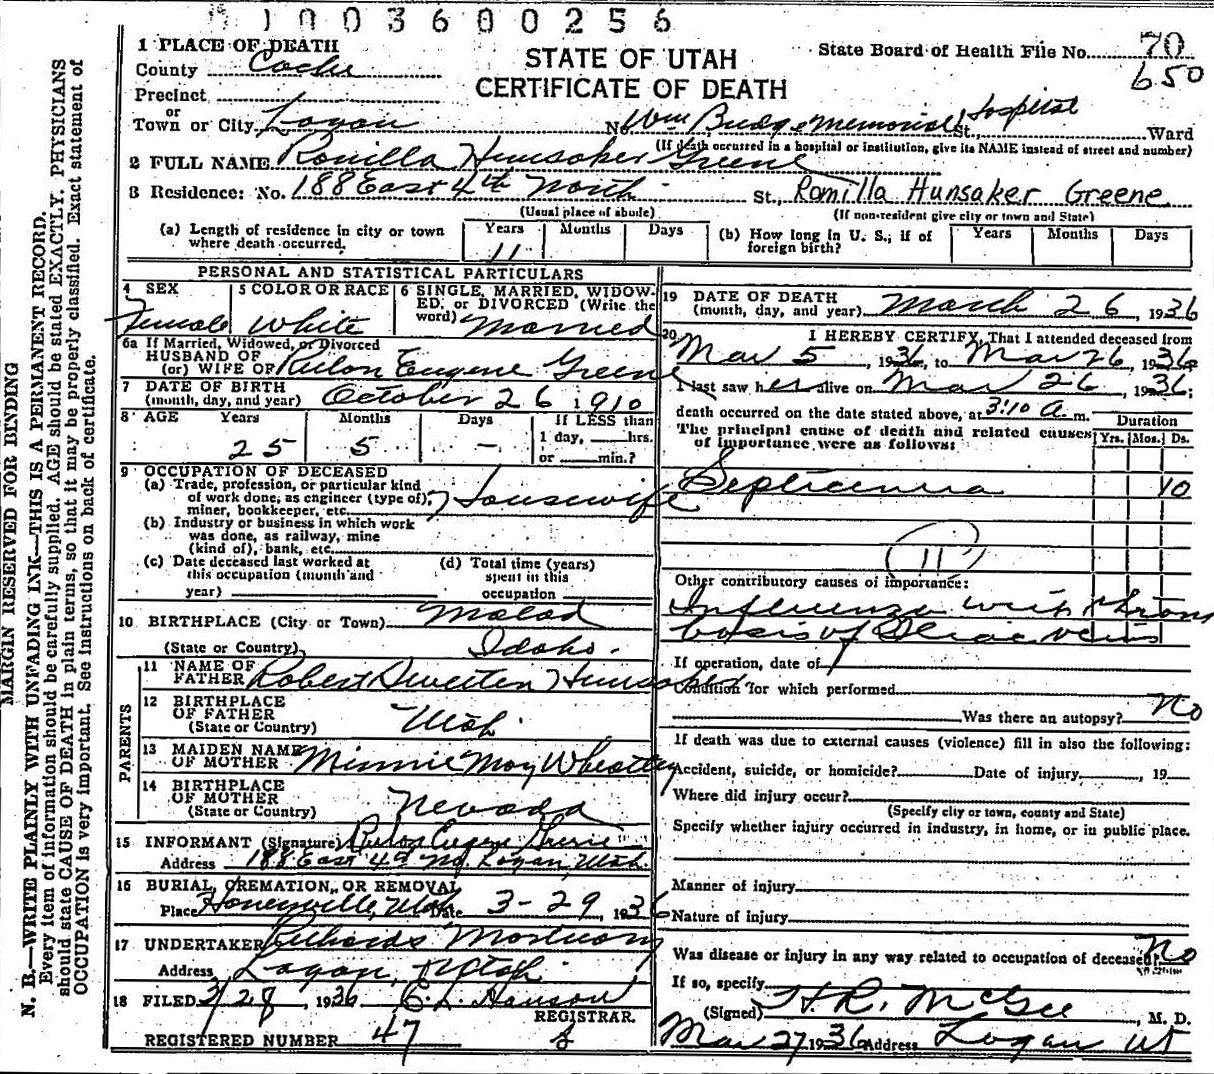 1003600256
STATE OF UTAH
CERTIFICATE OF DEATH
State Board of Health File No. 70
650
1 PLACE OF DEATH
County Cache
Precinct
or
Town or City Logan No. Wm Budge Memorial Hospital St., Ward
(If death occurred in a hospital or institution, give its NAME instead of street and number)
2 FULL NAME Romilla Hunsaker Greene
3 Residence: No. 188 East 4th North St., Romilla Hunsaker Greene
(Usual place of abode) (If non-resident give city or town and State)
(a) Length of residence in city or town where death occurred. Years 11 Months Days
(b) How long in U. S., if of foreign birth? Years Months Days
PERSONAL AND STATISTICAL PARTICULARS
4 SEX Female
5 COLOR OR RACE White
6 SINGLE, MARRIED, WIDOWED, or DIVORCED (Write the word) Married
6a If Married, Widowed, or Divorced
HUSBAND OF
(or) WIFE OF Rulon Eugene Greene
7 DATE OF BIRTH
(month, day, and year) October 26 1910
8 AGE Years 25 Months 5 Days — If LESS than 1 day, hrs. or min.?
9 OCCUPATION OF DECEASED
(a) Trade, profession, or particular kind of work done, as engineer (type of), miner, bookkeeper, etc. Housewife
(b) Industry or business in which work was done, as railway, mine (kind of), bank, etc.
(c) Date deceased last worked at this occupation (month and year)
(d) Total time (years) spent in this occupation
10 BIRTHPLACE (City or Town) Malad
(State or Country) Idaho.
PARENTS
11 NAME OF FATHER Robert Sweeten Hunsaker
12 BIRTHPLACE OF FATHER
(State or Country) Utah
13 MAIDEN NAME OF MOTHER Minnie May Wheatley
14 BIRTHPLACE OF MOTHER
(State or Country) Nevada
15 INFORMANT (Signature) Rulon Eugene Greene
Address 188 East 4th No. Logan, Utah.
16 BURIAL, CREMATION, OR REMOVAL
Place Honeyville, Utah Date 3-29, 1936
17 UNDERTAKER Richards Mortuary
Address Logan, Utah
18 FILED 3/28, 1936 C. L. Hanson
REGISTRAR
REGISTERED NUMBER 47
19 DATE OF DEATH
(month, day, and year) March 26, 1936
20 I HEREBY CERTIFY, That I attended deceased from
Mar 5, 1936, to Mar 26, 1936
I last saw her alive on Mar 26, 1936;
death occurred on the date stated above, at 3:10 A. m.
The principal cause of death and related causes of importance were as follows:
Duration
Yrs. Mos. Ds.
Septicemia 10
11
Other contributory causes of importance:
Influenza with throm
bosis of Iliac veins
If operation, date of
Condition for which performed
Was there an autopsy? No
If death was due to external causes (violence) fill in also the following:
Accident, suicide, or homicide? Date of injury , 19
Where did injury occur?
(Specify city or town, county and State)
Specify whether injury occurred in industry, in home, or in public place.
Manner of injury
Nature of injury
Was disease or injury in any way related to occupation of deceased? No
If so, specify
(Signed) H. R. McGee, M. D.
Mar 27, 1936 Address Logan Ut
MARGIN RESERVED FOR BINDING
N. B.—WRITE PLAINLY WITH UNFADING INK—THIS IS A PERMANENT RECORD.
Every item of information should be carefully supplied. AGE should be stated EXACTLY. PHYSICIANS
should state CAUSE OF DEATH in plain terms, so that it may be properly classified. Exact statement of
OCCUPATION is very important. See instructions on back of certificate.